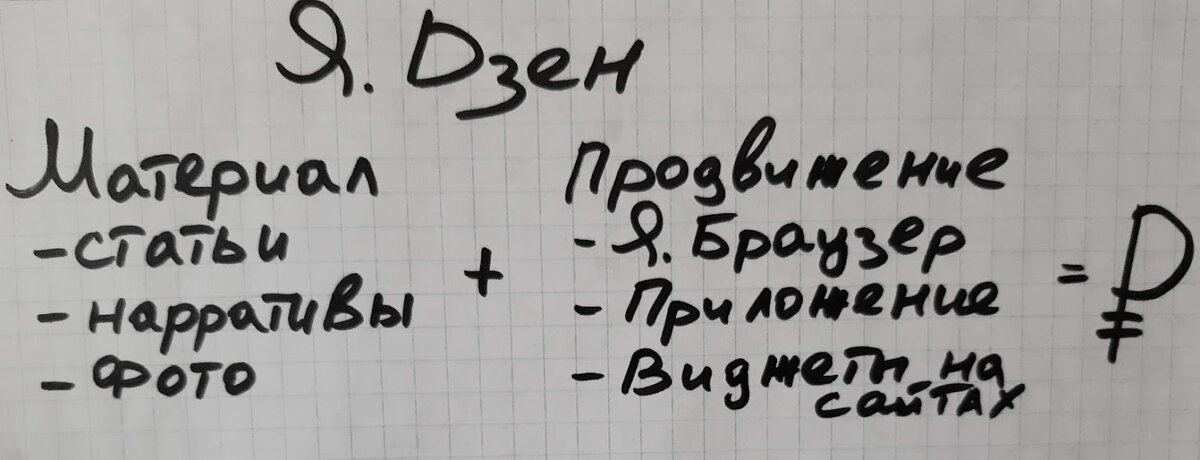 Я. Дзен
Материал
- статьи
- нарративы
- фото
+
Продвижение
- Я. Браузер
- Приложение
- Виджеты на
сайтах
= ₽